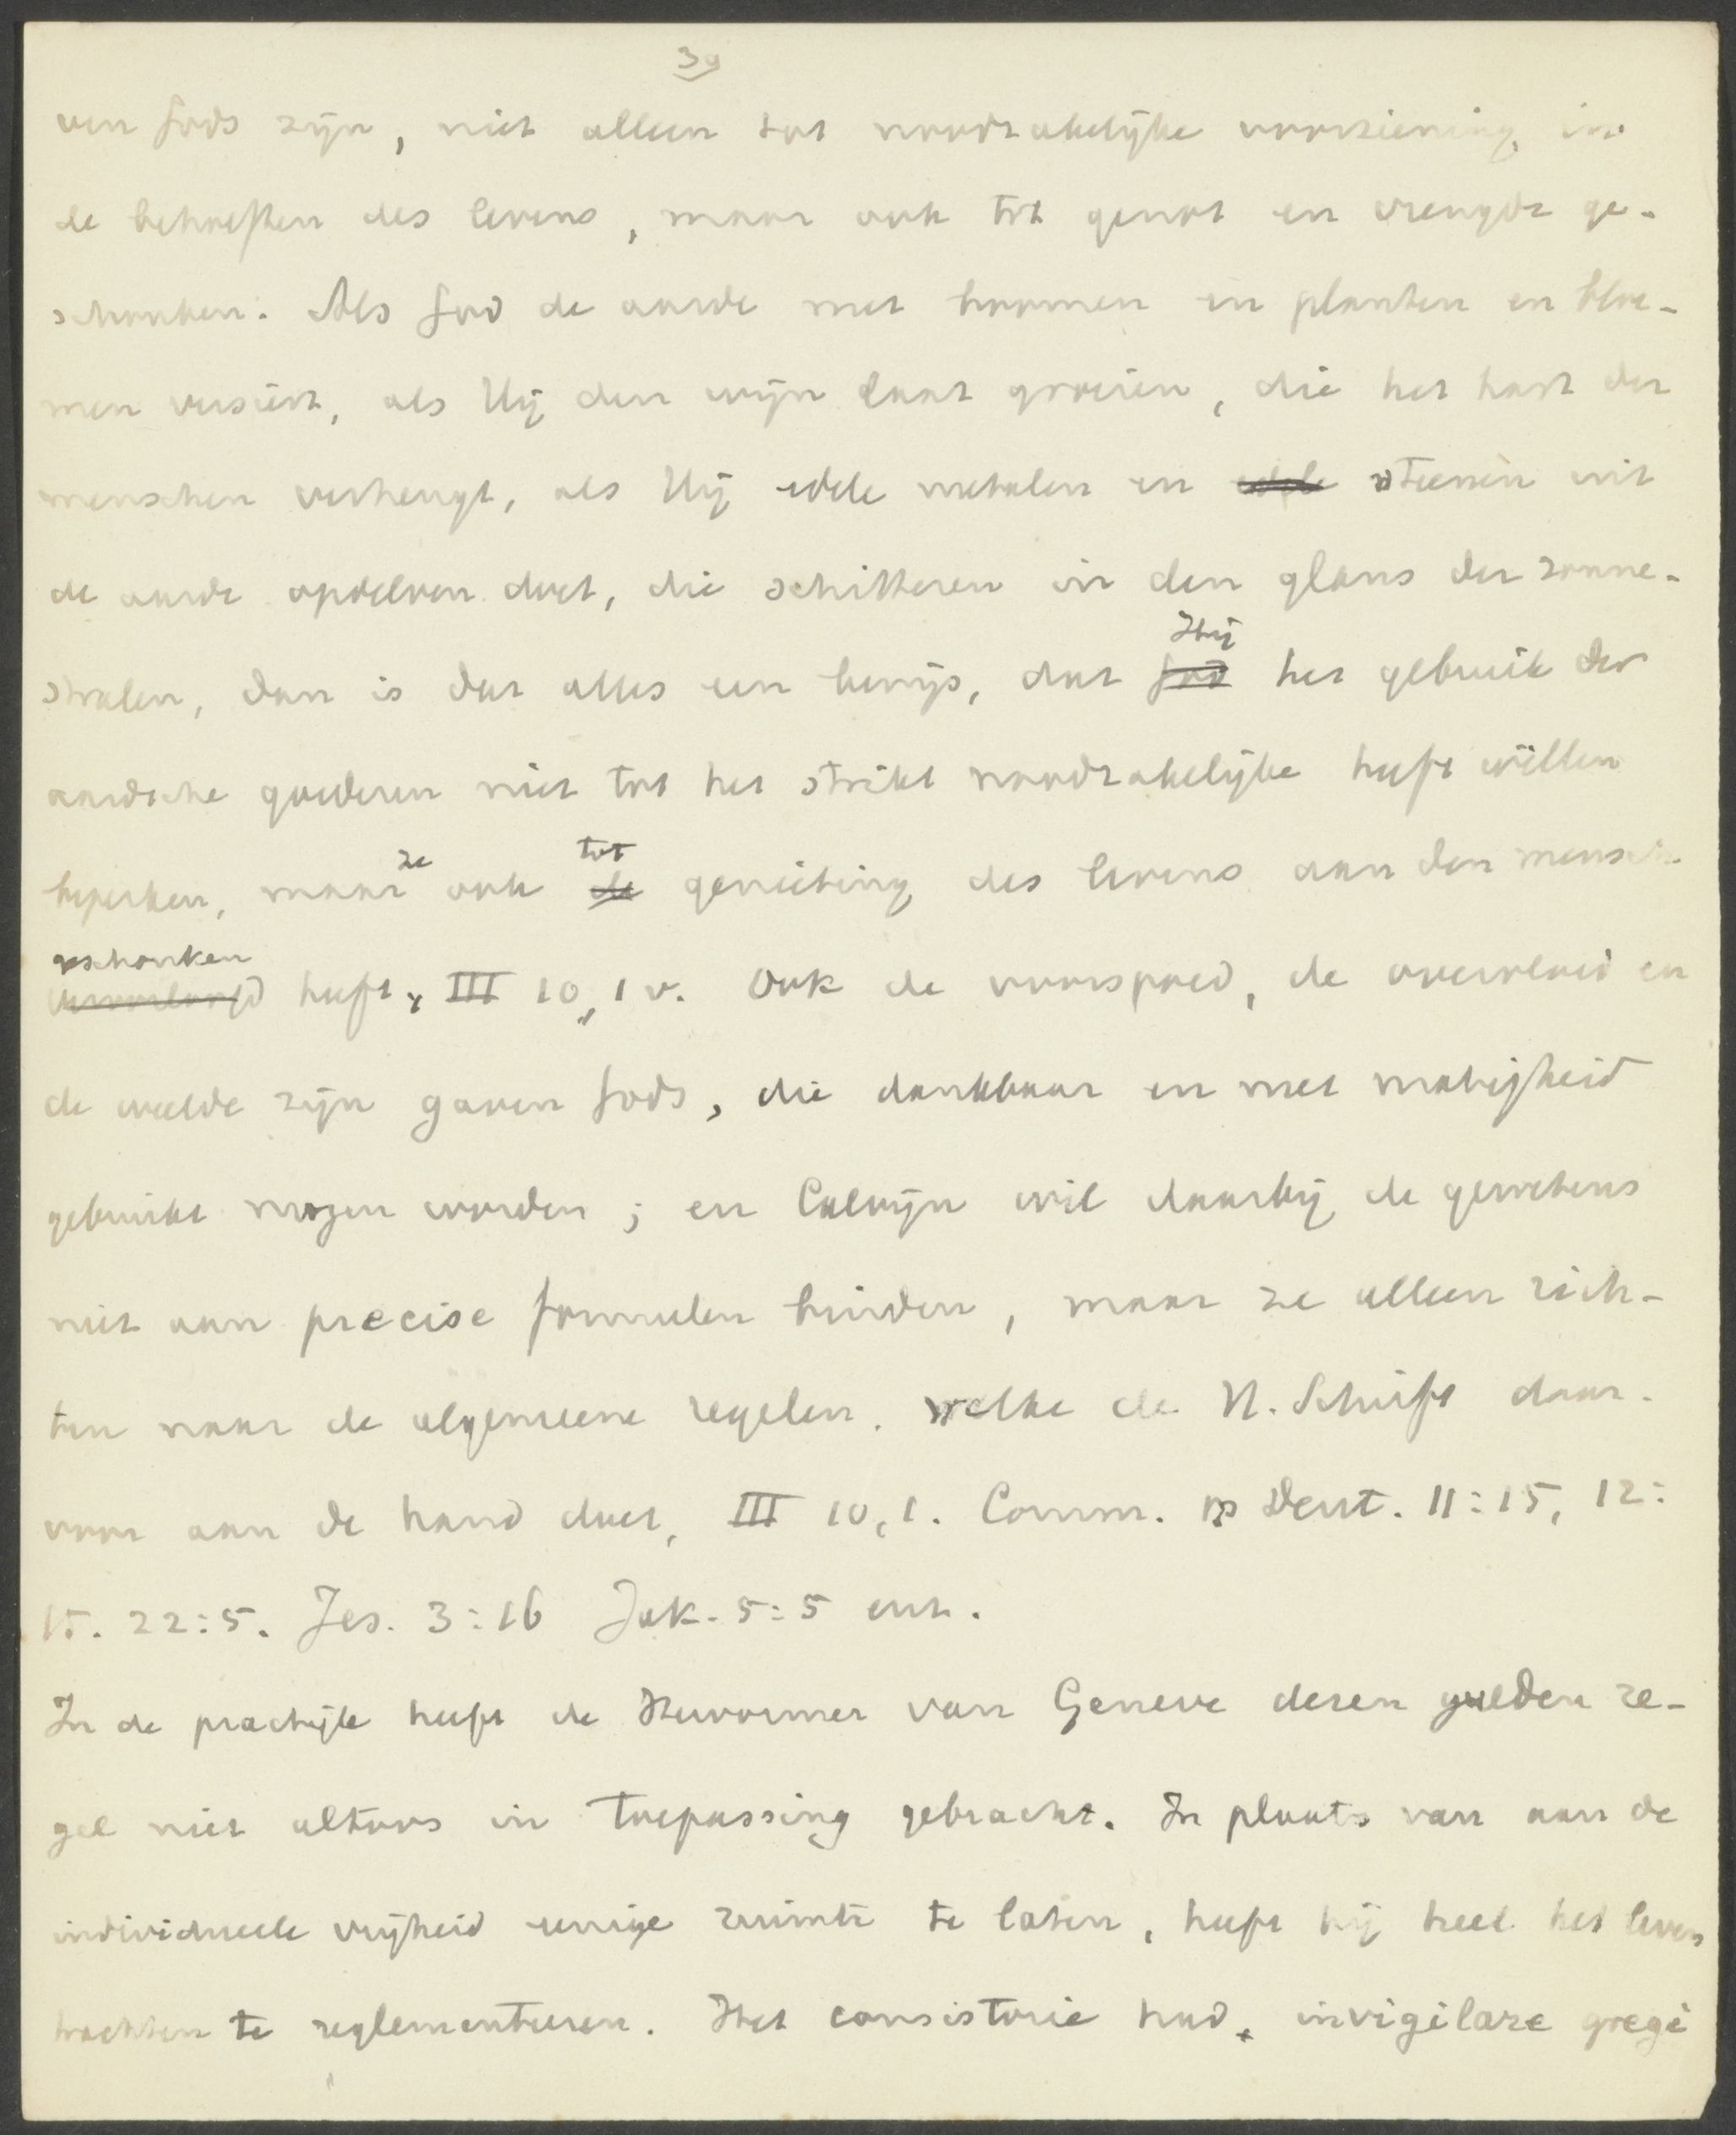 39
ven Gods zijn, niet alleen tot noodzakelijke voorziening in
de behoeften des levens, maar ook tot genot en vreugde ge-
schonken. Als God de aarde met boomen en planten en bloe-
men versiert, als Hij den wijn laat groeien, die het hart der
menschen verheugt, als Hij edele metalen en edele steenen uit
de aarde opdelven doet, die schitteren in den glans der zonne-
Hij
stralen, dan is dat alles een bewijs, dat God het gebruik der
aardsche goederen niet tot het strikt noodzakelijke heeft willen
ze tot
beperken, maar ook de genieting des levens aan den mensch
geschonken
veroorloofd heeft, III 10, 1 v. Ook de voorspoed, de overvloed en
de weelde zijn gaven Gods, die dankbaar en met matigheid
gebruikt mogen worden; en Calvijn wil daarbij de gewetens
niet aan precise formulen binden, maar ze alleen rich-
ten naar de algemeene regelen, welke de H. Schrift daar-
voor aan de hand doet, III 10,1. Comm. op Deut. 11:15, 12:
15. 22:5. Jes. 3:16 Jak. 5:5 enz.
In de practijk heeft de Hervormer van Geneve dezen gulden re-
gel niet altoos in toepassing gebracht. In plaats van aan de
individueele vrijheid eenige ruimte te laten, heeft hij heel het leven
trachten te reglementeeren. Het consistorie had, invigilare gregi